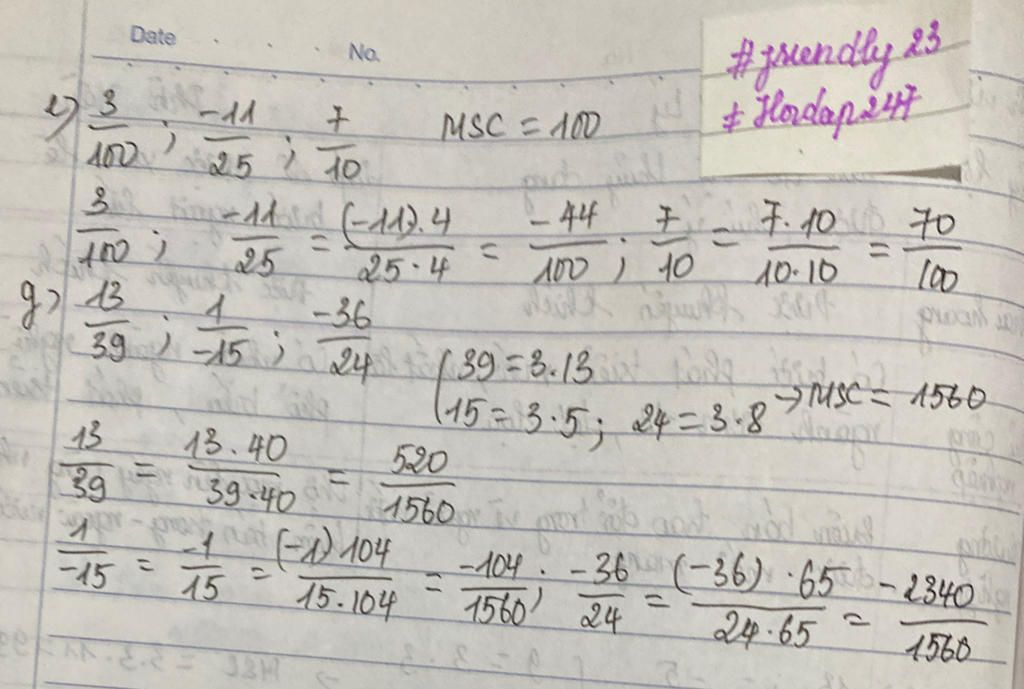 Date
No.
#friendly 23
# Hoidap247
e) 3/100 ; -11/25 ; 7/10 MSC = 100
3/100 ; -11/25 = (-11).4/25.4 = -44/100 ; 7/10 = 7.10/10.10 = 70/100
g) 13/39 ; 1/-15 ; -36/24
39 = 3.13
15 = 3.5; 24 = 3.8 → MSC = 1560
13/39 = 13.40/39.40 = 520/1560
1/-15 = -1/15 = (-1)104/15.104 = -104/1560 ; -36/24 = (-36).65/24.65 = -2340/1560